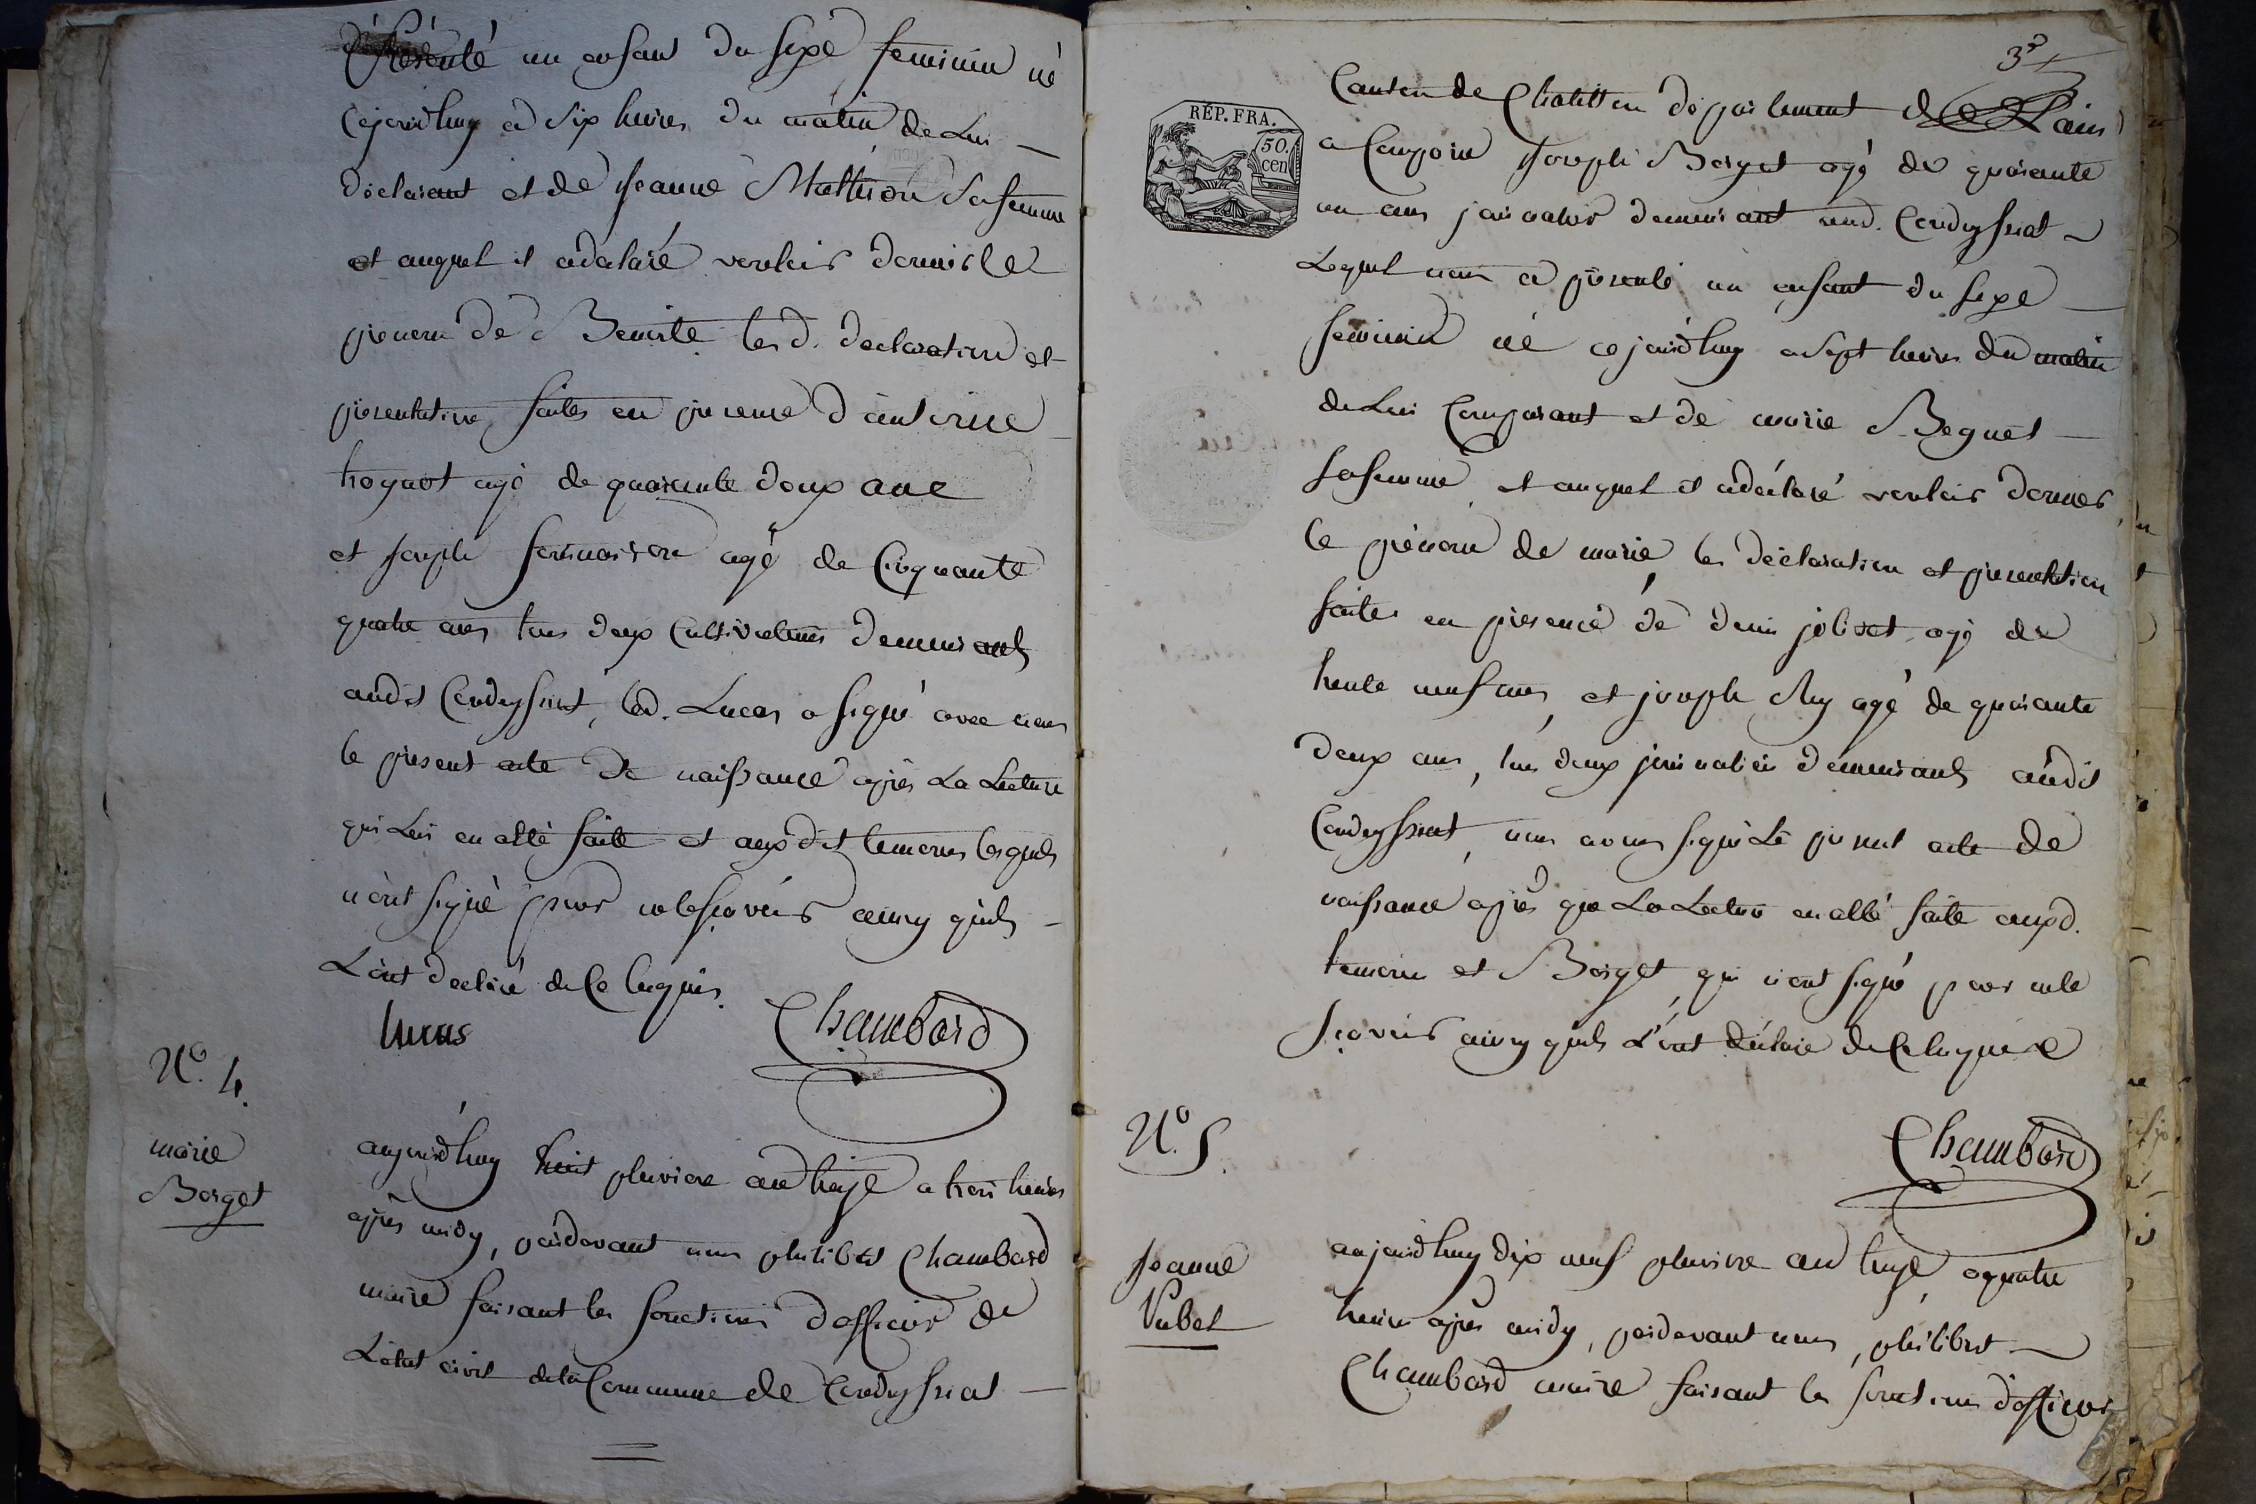 présenté un enfant du sexe feminin né
cejourdhuy a six heures du matin de Lui
déclarant et de Jeanne Mathion Sa femme
et auquel il adeclaré vouloir donner le
prenom de Benoite lesd. declaration et
presentation faites en presence d'antoine
hoguet agé de quarante deux ans
et Joseph agé de Cinquante
quatre ans tous deux Cultivateurs demeurants
audit Condeyssiat, led. Lucas a signé avec nous
le present acte de naissance après La Lecture
qui Lui en aété faite et auxdit temoins lesquels
n'ont signé pour nelesçavoir ainsy quils
L'ont declaré de Ce Enquis.
Lucas
Chambard
N.o 4.
marie
Borget
aujourdhuy huit pluviose an treize a trois heures
après midy, pardevant nous philibert Chambard
maire faisant les fonctions d'officier de
L'état civil dela Commune de Condeyssiat
3e
RÉP. FRA.
50.
cen
Canton de Chatillon département de L'ain
a Comparu Joseph Borget agé de quarante
un ans journalier demeurant aud. Condeyssiat
Lequel nous a présenté un enfant du sexe
feminin né cejourdhuy a sept heures du matin
de Lui Comparant et de marie Beguet
sa femme, et auquel il adéclaré vouloir donner
le prénom de marie, les déclaration et presentation
faites en presence de denis jolivet agé de
trente neuf ans, et joseph Rey agé de quarante
deux ans, tous deux journaliers demeurants audit
Condeyssiat, nous avons signé Le present acte de
naissance après que La Lecture en aété faite auxd.
temoins et Borget, qui n'ont signé pour nele
sçavoir ainsy quils L'ont déclaré de Ce Enquis
Chambard
N.o 5.
Jeanne
Vubet
aujourdhuy dix neuf pluviose an treize, a quatre
heures après midy, pardevant nous, philibert
Chambard maire faisant les fonctions d'officier